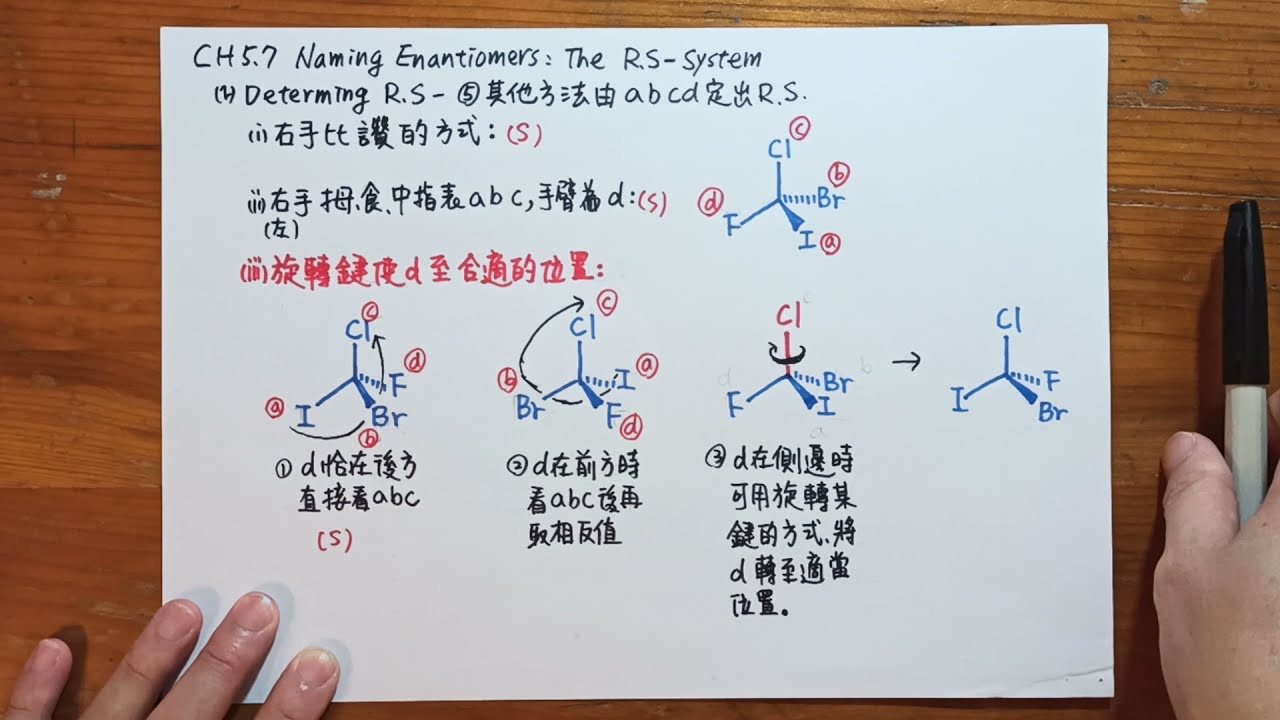 CH5.7 Naming Enantiomers: The R.S-System
(2) Determing R.S-⑤其他方法由abcd定出R.S.
(i)右手比讚的方式:(S)
(ii)右手拇、食、中指表abc,手臂為d:(S)
(左)
c
Cl
b
Br
d
F
I
a
(iii)旋轉鍵使d至合適的位置:
c
Cl
d
F
a
I
Br
b
c
Cl
a
I
b
Br
F
d
c
Cl
d
b
Br
F
I
a
→
Cl
F
I
Br
①d恰在後方
直接看abc
(S)
②d在前方時
看abc後再
取相反值
③d在側邊時
可用旋轉某
鍵的方式、將
d轉至適當
位置。